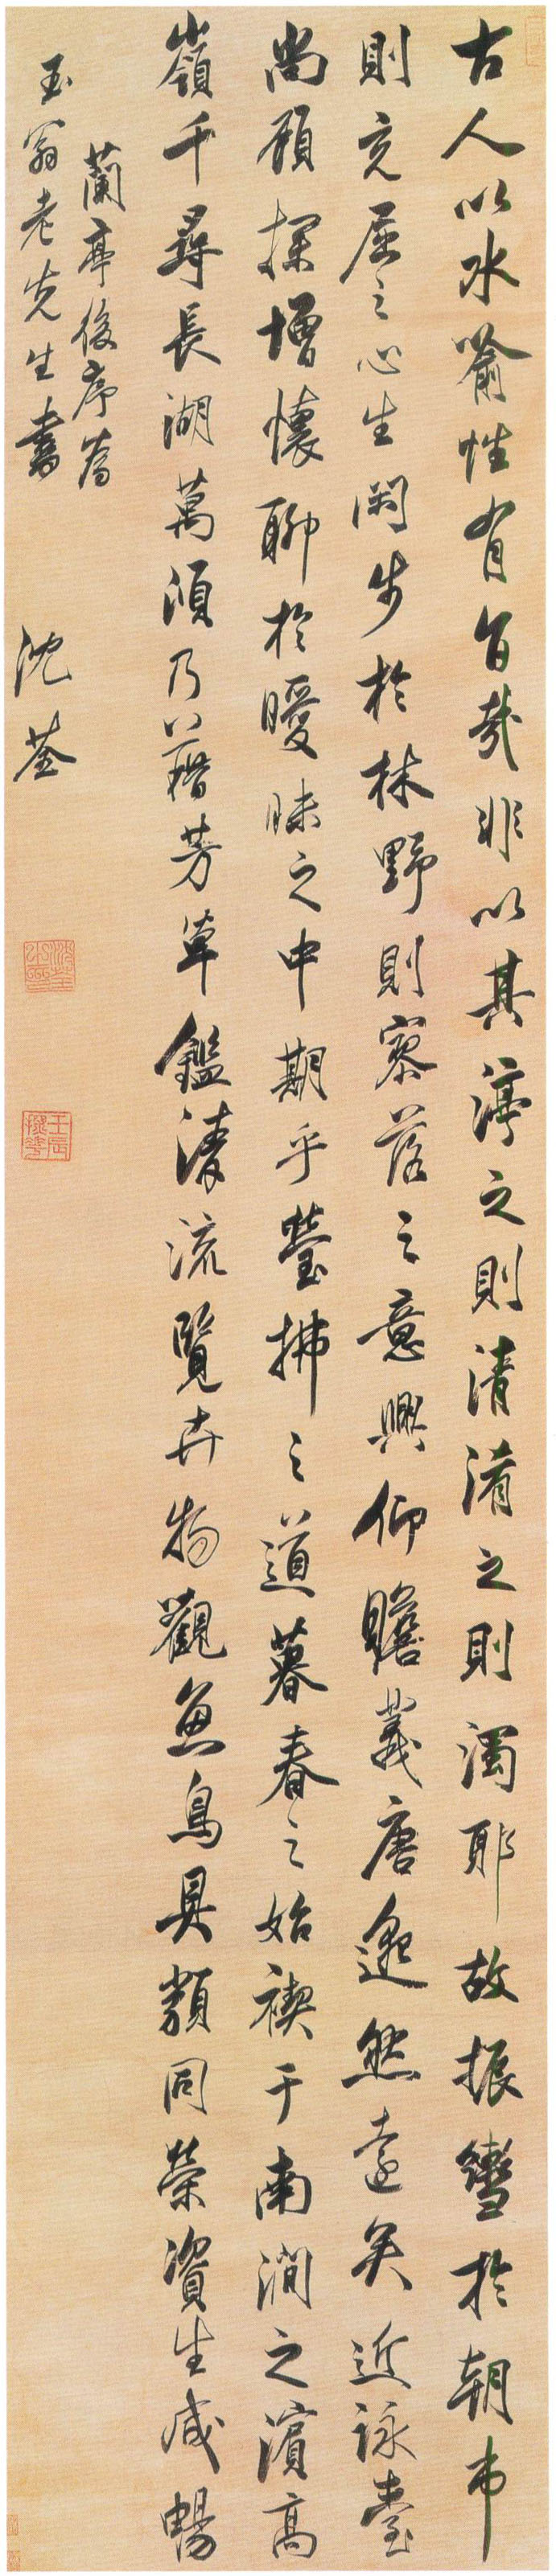 古人以水喻性有旨哉非以其渟之則清淆之則濁耶故振轡於朝市
則充屈之心生闲步於林野則寥落之意興仰瞻羲唐邈然遠矣近詠臺
尚顾探增懷聊於曖昧之中期乎瑩拂之道暮春之始禊于南澗之濱高
嶺千尋長湖萬頃乃藉芳草鑑清流覽卉物觀魚鳥具類同榮資生咸暢
蘭亭後序為
玉翁老先生書
沈荃
沈荃之印
壬辰探花